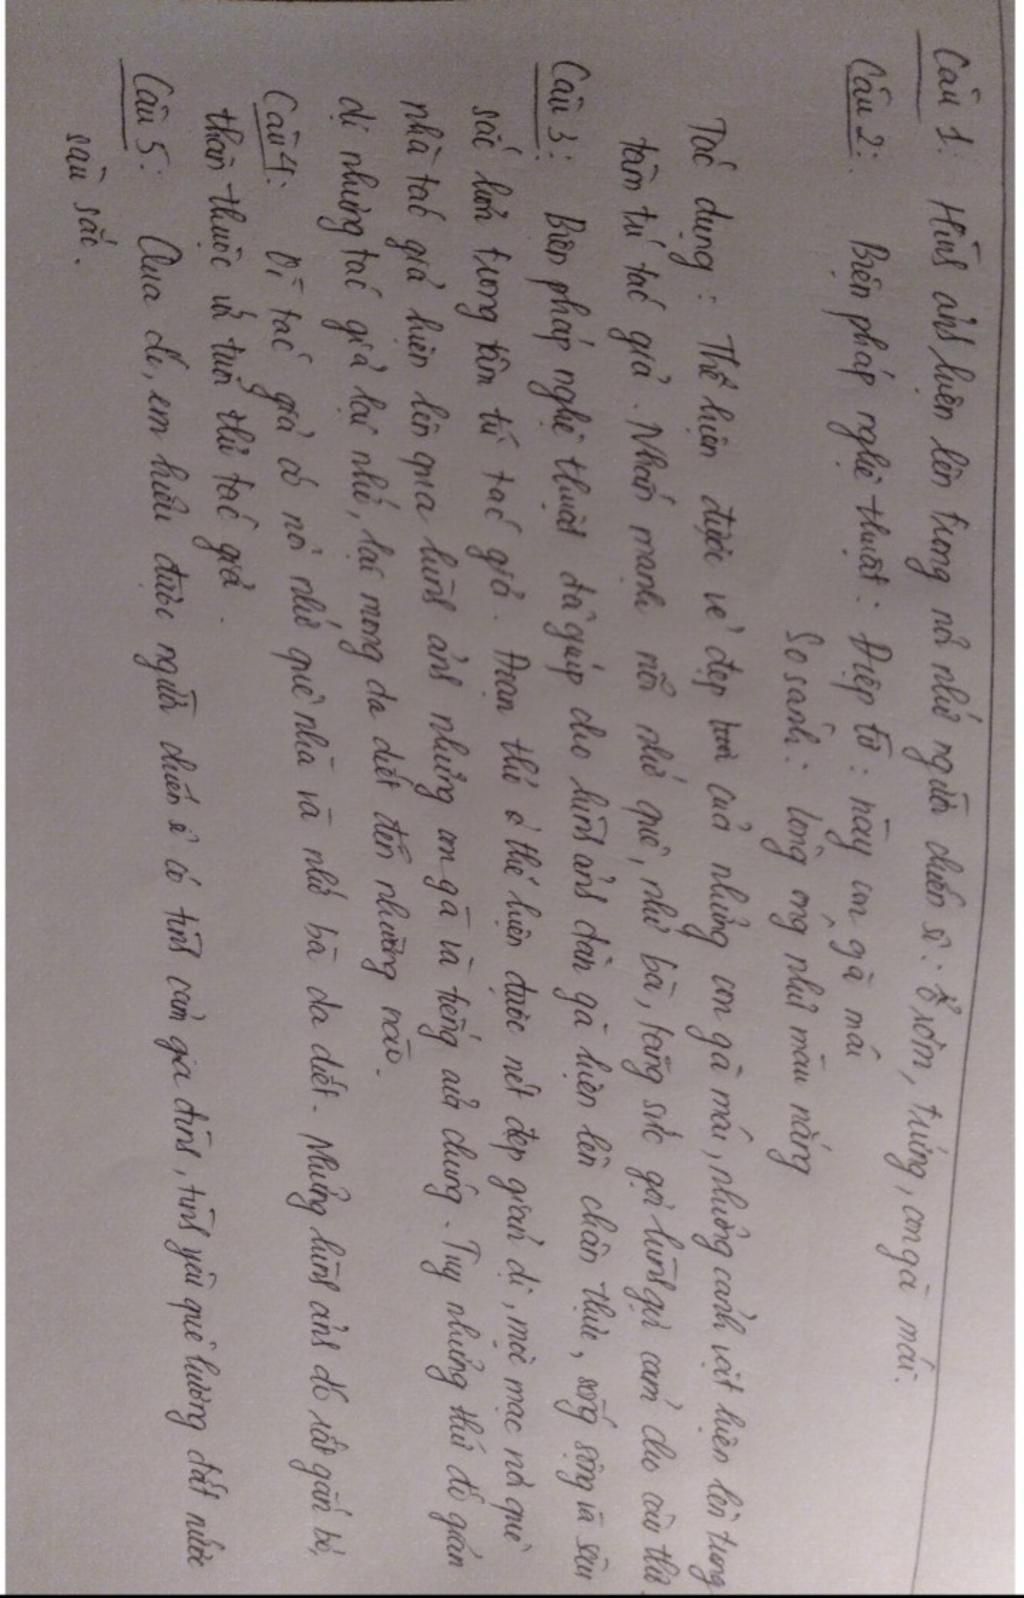 Câu 1: Hình ảnh hiện lên trong nỗi nhớ người chiến sĩ: ổ rơm, trứng, con gà mái.
Câu 2: Biện pháp nghệ thuật: Điệp từ: này con gà mái
So sánh: lông óng như màu nắng
Tác dụng: Thể hiện được vẻ đẹp của những con gà mái, những cảnh vật hiện lên trong
tâm trí tác giả. Nhấn mạnh nỗi nhớ quê, nhớ bà, tăng sức gợi hình gợi cảm cho câu thơ.
Câu 3: Biện pháp nghệ thuật đã giúp cho hình ảnh đàn gà hiện lên chân thực, sống động và sâu
sắc hơn trong tâm trí tác giả. Đoạn thơ thể hiện được nét đẹp giản dị, mộc mạc nơi quê
nhà tác giả hiện lên qua hình ảnh những con gà và tiếng của chúng. Tuy những thứ đó giản
dị nhưng tác giả lại nhớ, lại mong da diết đến nhường nào.
Câu 4: Vì tác giả có nỗi nhớ quê nhà và nhớ bà da diết. Những hình ảnh đó rất gắn bó,
thân thuộc với tuổi thơ tác giả.
Câu 5: Qua đó, em hiểu được người chiến sĩ có tình cảm gia đình, tình yêu quê hương đất nước
sâu sắc.